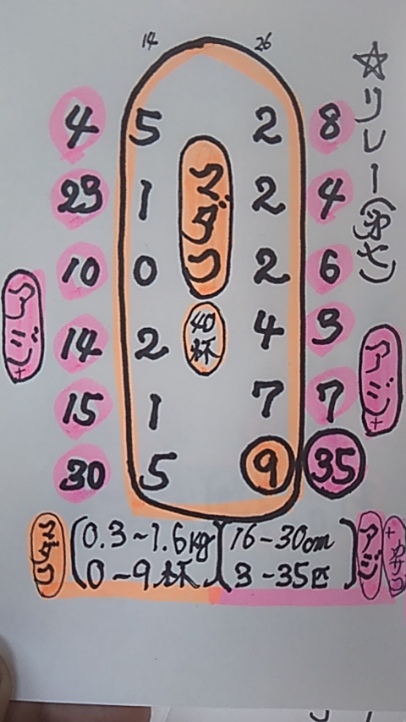 ☆リレー(沖七)
14 26
4 5 2 8
29 1 マダコ 2 4
10 0 2 6
アジ+ 14 2 40杯 4 3 アジ+
15 1 7 7
30 5 9 35
マダコ (0.3~1.6kg)(16-30cm) アジ+カサゴ
0-9杯 3-35匹